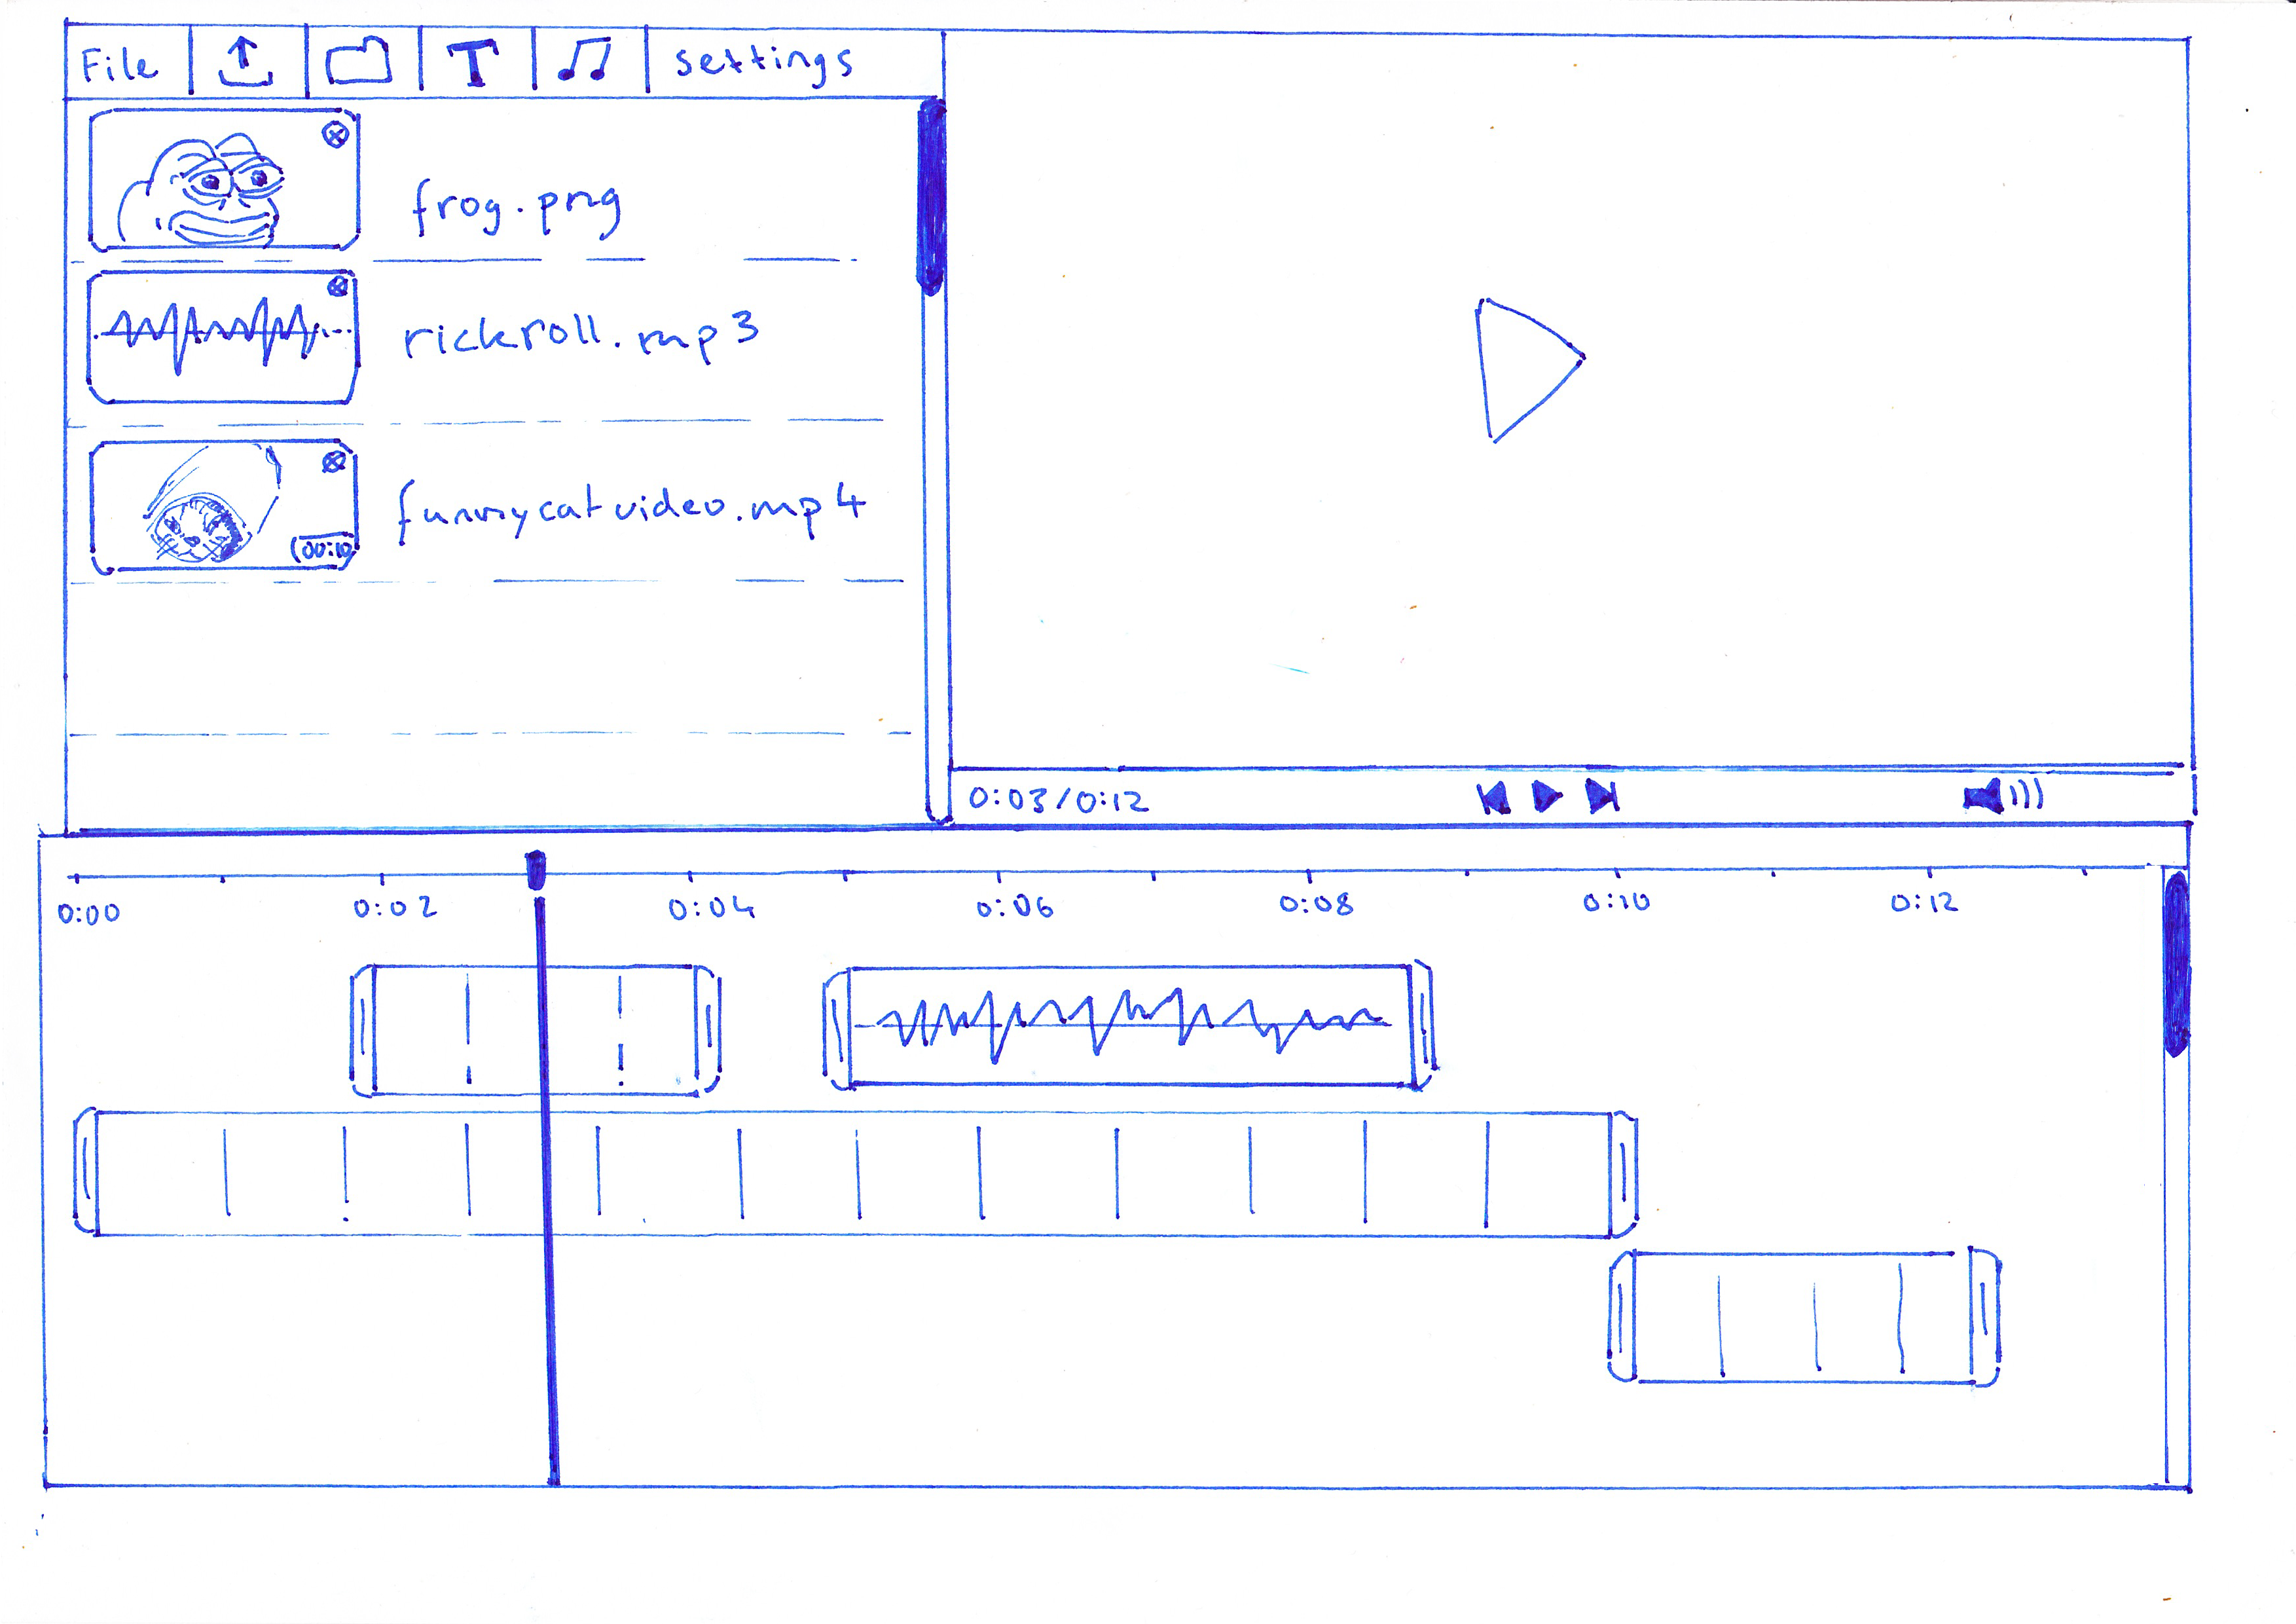 File T settings
frog.png
rickroll.mp3
funnycatvideo.mp4
00:10
0:03/0:12
0:00 0:02 0:04 0:06 0:08 0:10 0:12